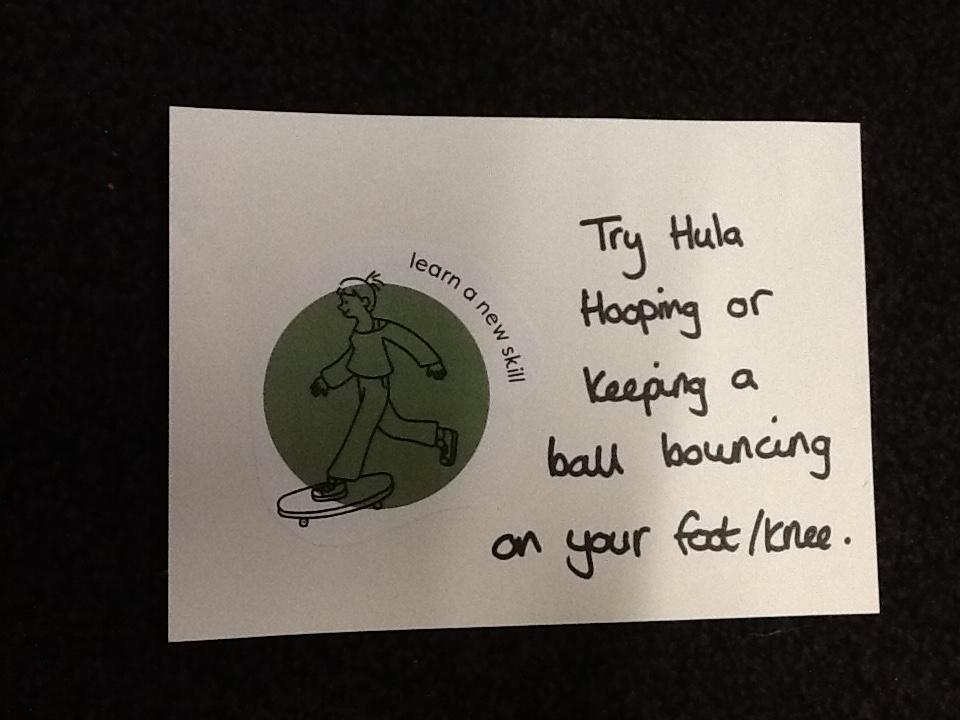 learn a new skill
Try Hula
Hooping or
Keeping a
ball bouncing
on your foot/knee.